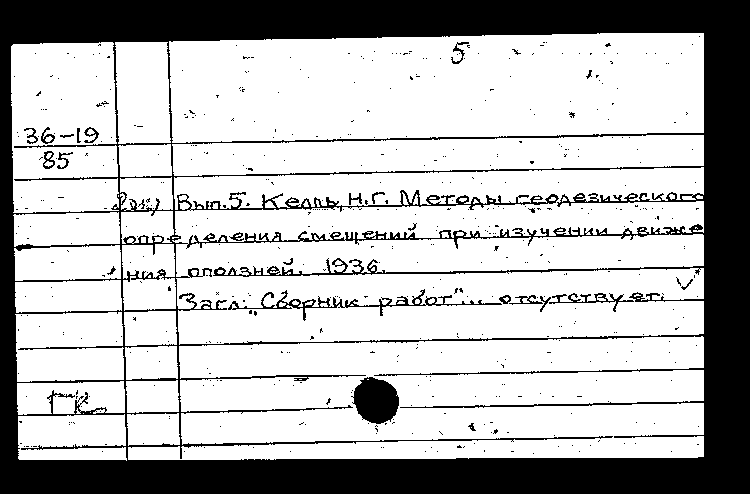 5
36-19
85
2эк) Вып.5. Келль, Н.Г. Методы геодезического
определения смещений при изучении движе
ния оползней. 1936.
Загл. "Сборник работ"... отсутствует.
ГК